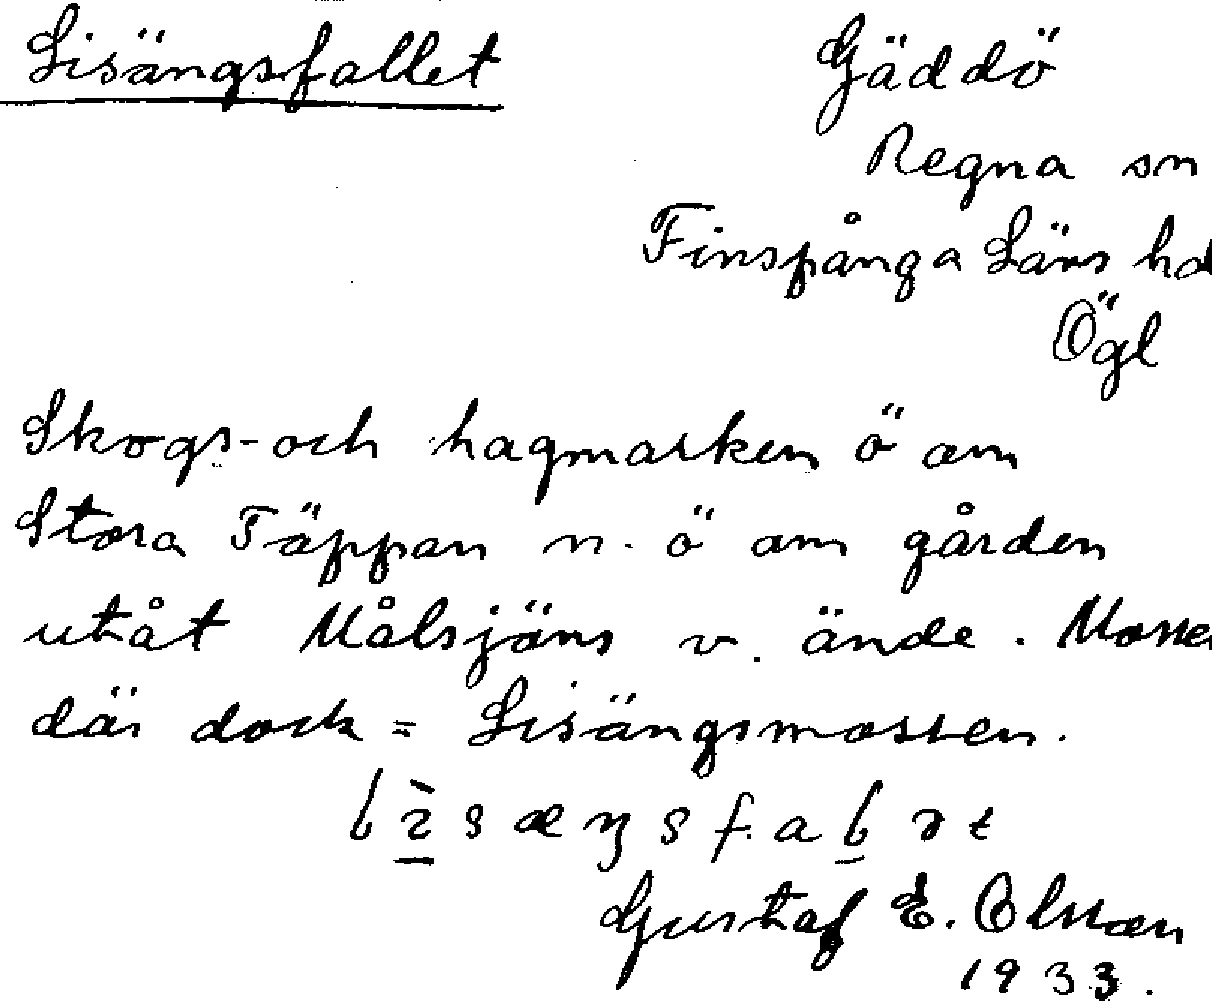 Lisängsfallet
Gäddö
Regna sn
Finspånga Läns hd
Ögl
Skogs- och hagmarken ö om
Stora Täppan n. ö om gården
utåt Målsjöns v. ände. Mossen
där dock = Lisängsmossen.
Gustaf E. Olsson
1933.